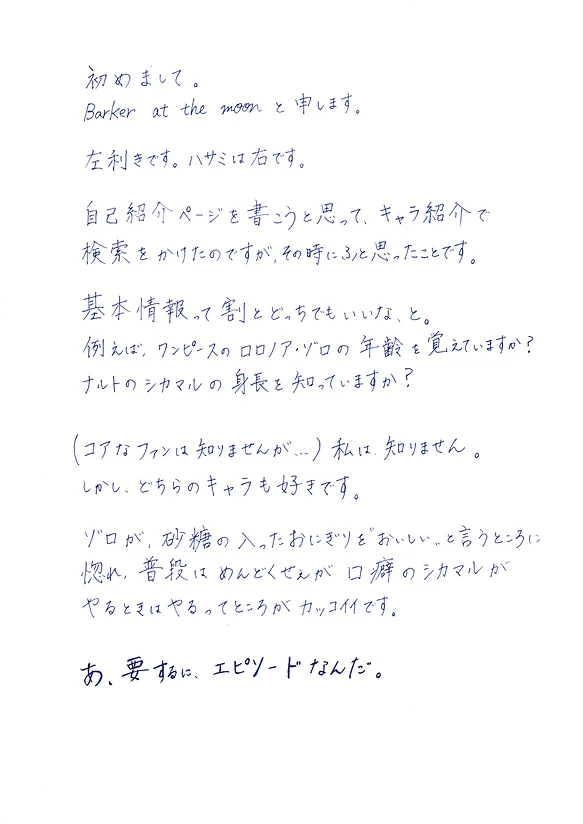 初めまして。
Barker at the moon と申します。
左利きです。ハサミは右です。
自己紹介ページを書こうと思って、キャラ紹介で
検索をかけたのですが、その時にふと思ったことです。
基本情報って割とどっちでもいいな、と。
例えば、ワンピースのロロノア・ゾロの年齢を覚えていますか?
ナルトのシカマルの身長を知っていますか?
(コアなファンは知りませんが…)私は、知りません。
しかし、どちらのキャラも好きです。
ゾロが、砂糖の入ったおにぎりを"おいしい"と言うところに
惚れ、普段はめんどくせぇが口癖のシカマルが
やるときはやるってところがカッコイイです。
あ、要するに、エピソードなんだ。